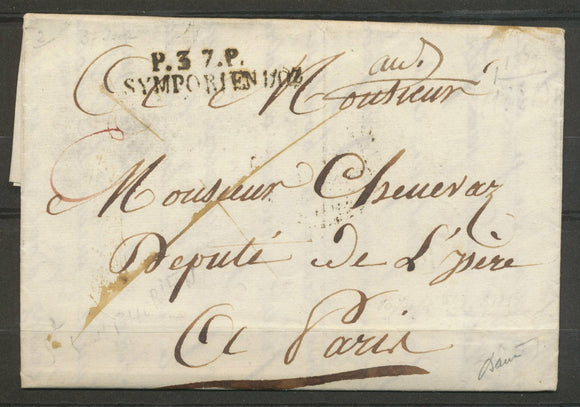 P.37.P.
SYMPORIEN D'OZ
a
Monsieur
Monsieur Chenevaz
Deputé de L'Isère
A Paris